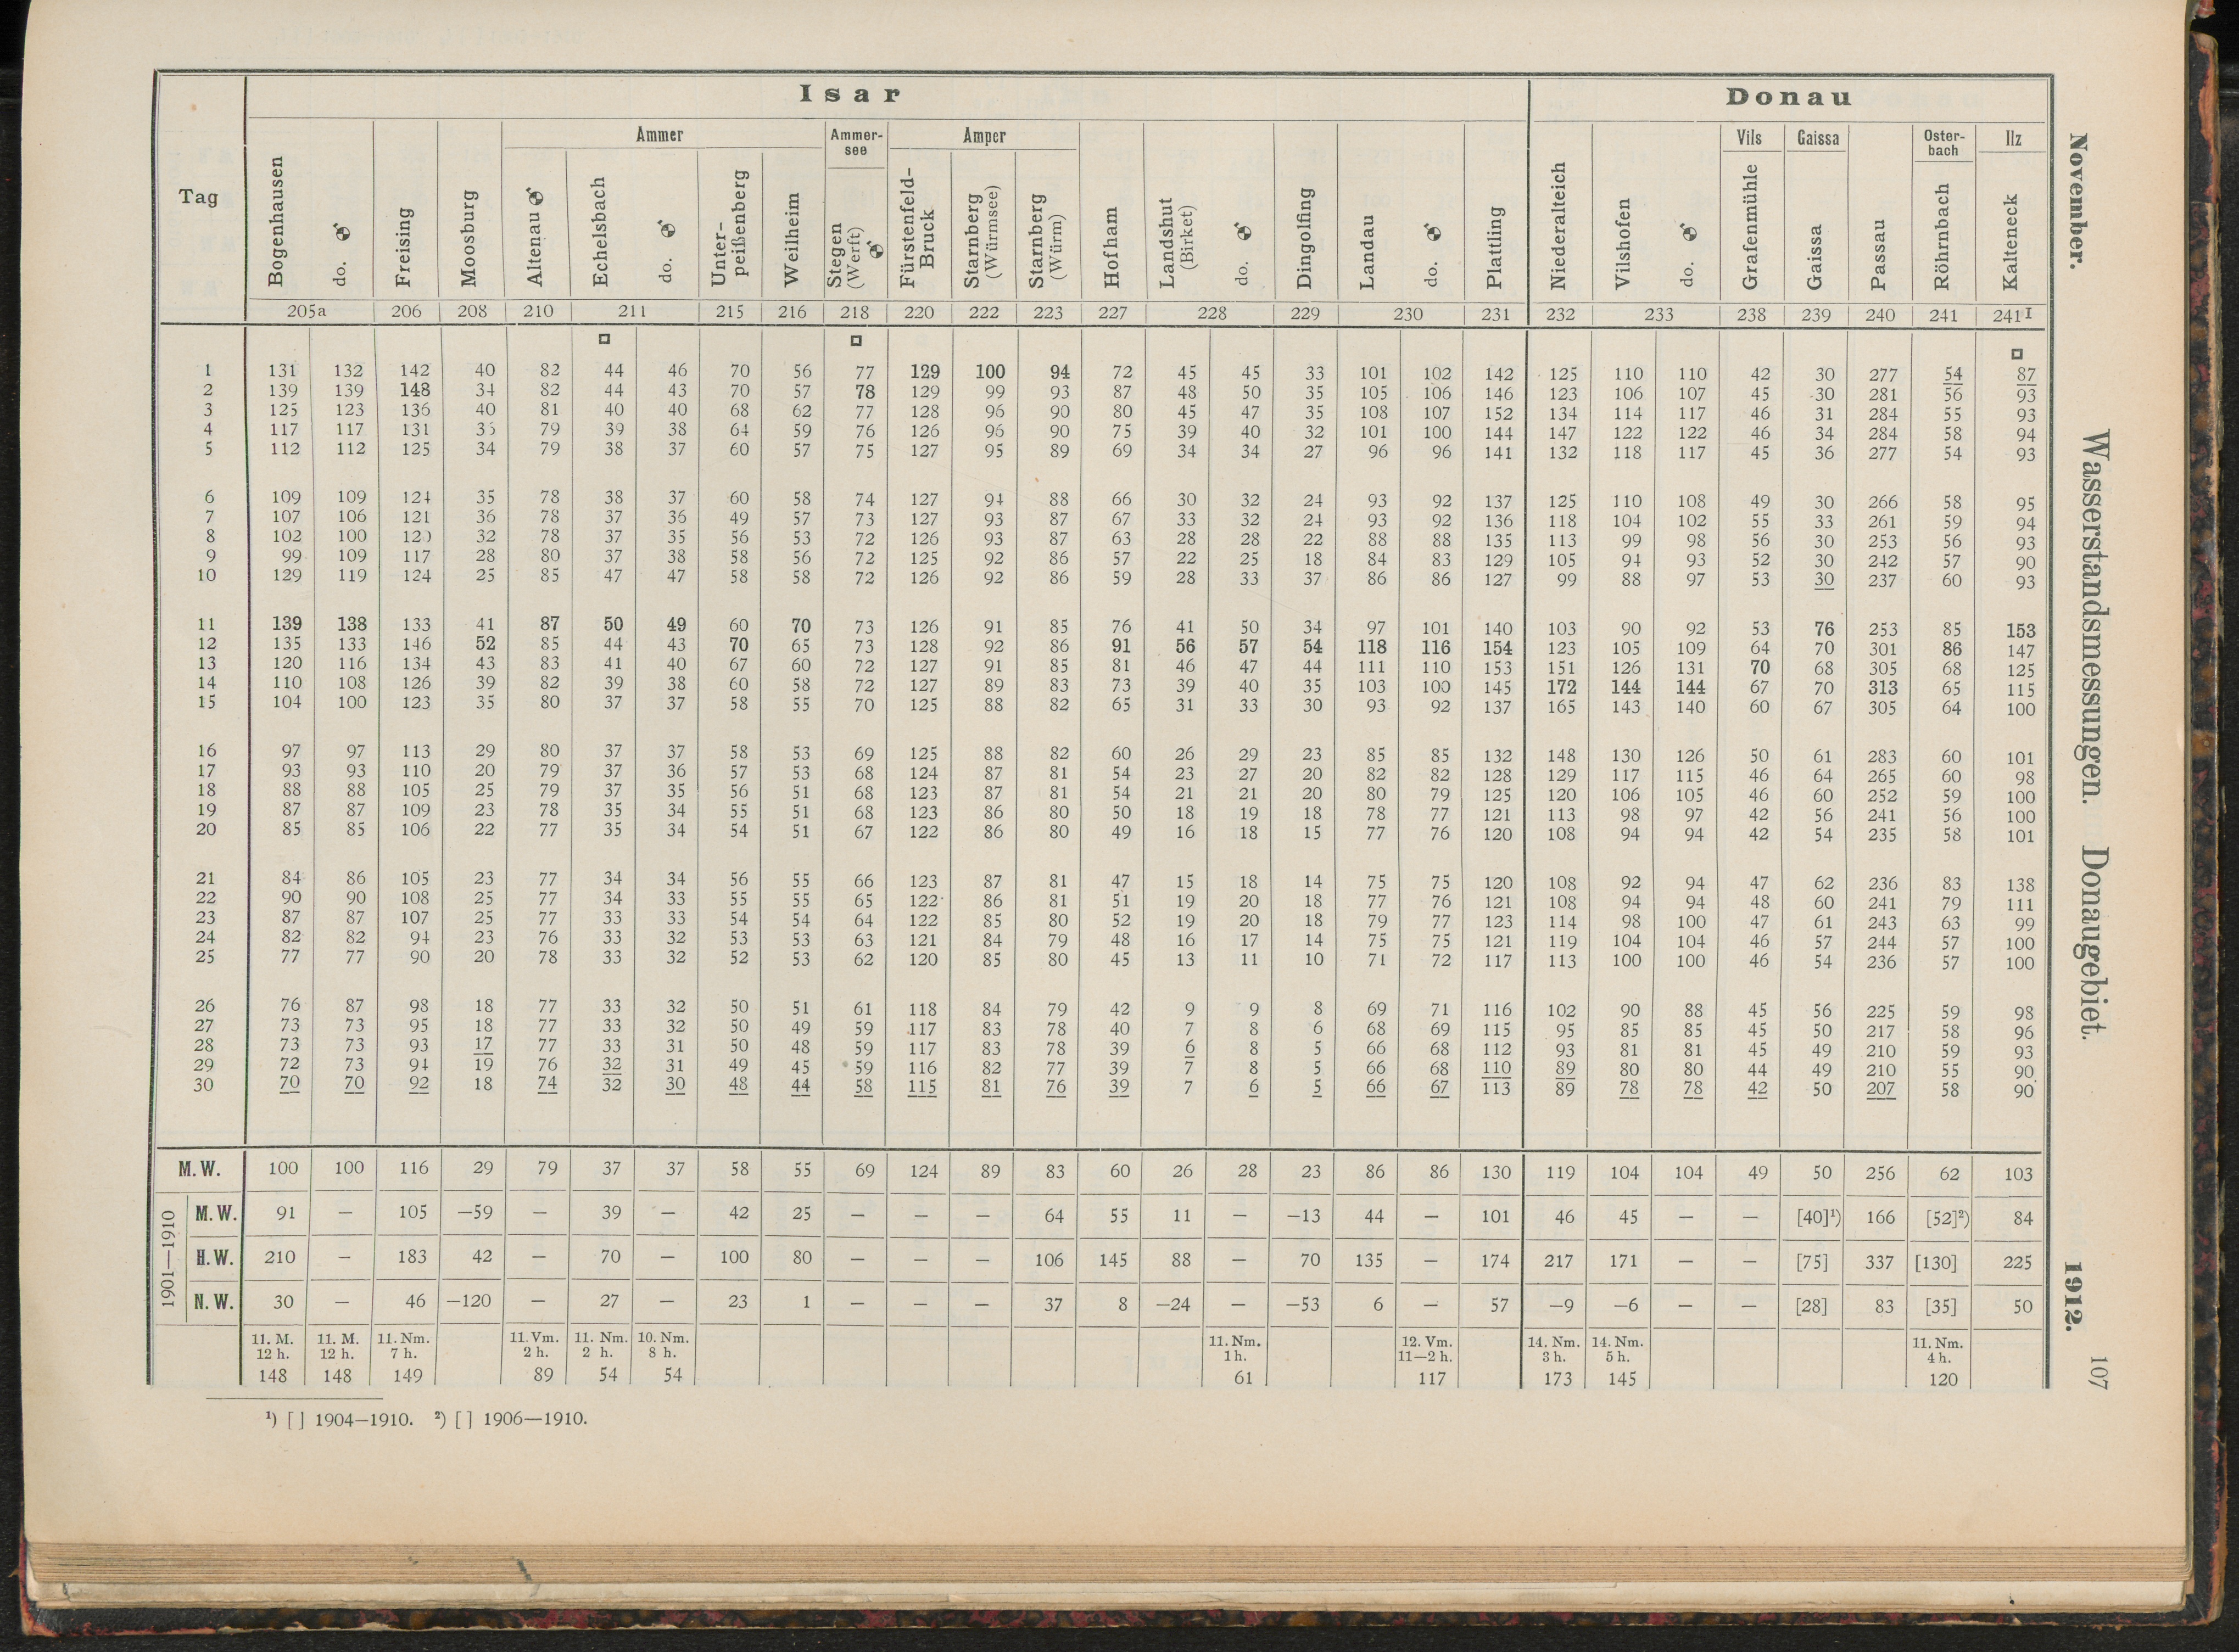 November. Wasserstandsmessungen. Donaugebiet. 1912. 107
Isar Donau
Ammer Ammer-see Amper Vils Gaissa Oster-bach Ilz
Tag Bogenhausen do. Freising Moosburg Altenau Echelsbach do. Unter-peißenberg Weilheim Stegen (Werft) Fürstenfeld-Bruck Starnberg (Würmsee) Starnberg (Würm) Hofham Landshut (Birket) do. Dingolfing Landau do. Plattling Niederalteich Vilshofen do. Grafenmühle Gaissa Passau Röhrnbach Kalteneck
205a 206 208 210 211 215 216 218 220 222 223 227 228 229 230 231 232 233 238 239 240 241 241I
1 131 132 142 40 82 44 46 70 56 77 129 100 94 72 45 45 33 101 102 142 125 110 110 42 30 277 54 87
2 139 139 148 34 82 44 43 70 57 78 129 99 93 87 48 50 35 105 106 146 123 106 107 45 30 281 56 93
3 125 123 136 40 81 40 40 68 62 77 128 96 90 80 45 47 35 108 107 152 134 114 117 46 31 284 55 93
4 117 117 131 79 39 38 64 59 76 126 96 90 75 39 40 32 101 100 144 147 122 122 46 34 284 58 94
5 112 112 125 34 79 38 37 60 57 75 127 95 89 69 34 34 27 96 96 141 132 118 117 45 36 277 54 93
6 109 109 124 35 78 38 37 60 58 74 127 94 88 66 30 32 24 93 92 137 125 110 108 49 30 266 58 95
7 107 106 121 36 78 37 36 49 57 73 127 93 87 67 33 32 24 93 92 136 118 104 102 55 33 261 59 94
8 102 100 120 32 78 37 35 56 53 72 126 93 87 63 28 28 22 88 88 135 113 99 98 56 30 253 56 93
9 99 109 117 28 80 37 38 58 56 72 125 92 86 57 22 25 18 84 83 129 105 94 93 52 30 242 57 90
10 129 119 124 25 85 47 47 58 58 72 126 92 86 59 28 33 37 86 86 127 99 88 97 53 30 237 60 93
11 139 138 133 41 87 50 49 60 70 73 126 91 85 76 41 50 34 97 101 140 103 90 92 53 76 253 85 153
12 135 133 146 52 85 44 43 70 65 73 128 92 86 91 56 57 54 118 116 154 123 105 109 64 70 301 86 147
13 120 116 134 43 83 41 40 67 60 72 127 91 85 81 46 47 44 111 110 153 151 126 131 70 68 305 68 125
14 110 108 126 39 82 39 38 60 58 72 127 89 83 73 39 40 35 103 100 145 172 144 144 67 70 313 65 115
15 104 100 123 35 80 37 37 58 55 70 125 88 82 65 31 33 30 93 92 137 165 143 140 60 67 305 64 100
16 97 97 113 29 80 37 37 58 53 69 125 88 82 60 26 29 23 85 85 132 148 130 126 50 61 283 60 101
17 93 93 110 20 79 37 36 57 53 68 124 87 81 54 23 27 20 82 82 128 129 117 115 46 64 265 60 98
18 88 88 105 25 79 37 35 56 51 68 123 87 81 54 21 21 20 80 79 125 120 106 105 46 60 252 59 100
19 87 87 109 23 78 35 34 55 51 68 123 86 80 50 18 19 18 78 77 121 113 98 97 42 56 241 56 100
20 85 85 106 22 77 35 34 54 51 67 122 86 80 49 16 18 15 77 76 120 108 94 94 42 54 235 58 101
21 84 86 105 23 77 34 34 56 55 66 123 87 81 47 15 18 14 75 75 120 108 92 94 47 62 236 83 138
22 90 90 108 25 77 34 33 55 55 65 122 86 81 51 19 20 18 77 76 121 108 94 94 48 60 241 79 111
23 87 87 107 25 77 33 33 54 54 64 122 85 80 52 19 20 18 79 77 123 114 98 100 47 61 243 63 99
24 82 82 94 23 76 33 32 53 53 63 121 84 79 48 16 17 14 75 75 121 119 104 104 46 57 244 57 100
25 77 77 90 20 78 33 32 52 53 62 120 85 80 45 13 11 10 71 72 117 113 100 100 46 54 236 57 100
26 76 87 98 18 77 33 32 50 51 61 118 84 79 42 9 9 8 69 71 116 102 90 88 45 56 225 59 98
27 73 73 95 18 77 33 32 50 49 59 117 83 78 40 7 8 6 68 69 115 95 85 85 45 50 217 58 96
28 73 73 93 17 77 33 31 50 48 59 117 83 78 39 6 8 5 66 68 112 93 81 81 45 49 210 59 93
29 72 73 94 19 76 32 31 49 45 59 116 82 77 39 7 8 5 66 68 110 89 80 80 44 49 210 55 90
30 70 70 92 18 74 32 30 48 44 58 115 81 76 39 7 6 5 66 67 113 89 78 78 42 50 207 58 90
M.W. 100 100 116 29 79 37 37 58 55 69 124 89 83 60 26 28 23 86 86 130 119 104 104 49 50 256 62 103
1901—1910
M.W. 91 — 105 —59 — 39 — 42 25 — — — 64 55 11 — —13 44 — 101 46 45 — — [40]¹) 166 [52]²) 84
H.W. 210 — 183 42 — 70 — 100 80 — — — 106 145 88 — 70 135 — 174 217 171 — — [75] 337 [130] 225
N.W. 30 — 46 —120 — 27 — 23 1 — — — 37 8 —24 — —53 6 — 57 —9 —6 — — [28] 83 [35] 50
11. M. 11. M. 11. Nm. 11. Vm. 11. Nm. 10. Nm. 11. Nm. 12. Vm. 14. Nm. 14. Nm. 11. Nm.
12 h. 12 h. 7 h. 2 h. 2 h. 8 h. 1 h. 11—2 h. 3 h. 5 h. 4 h.
148 148 149 89 54 54 61 117 173 145 120
¹) [ ] 1904—1910. ²) [ ] 1906—1910.